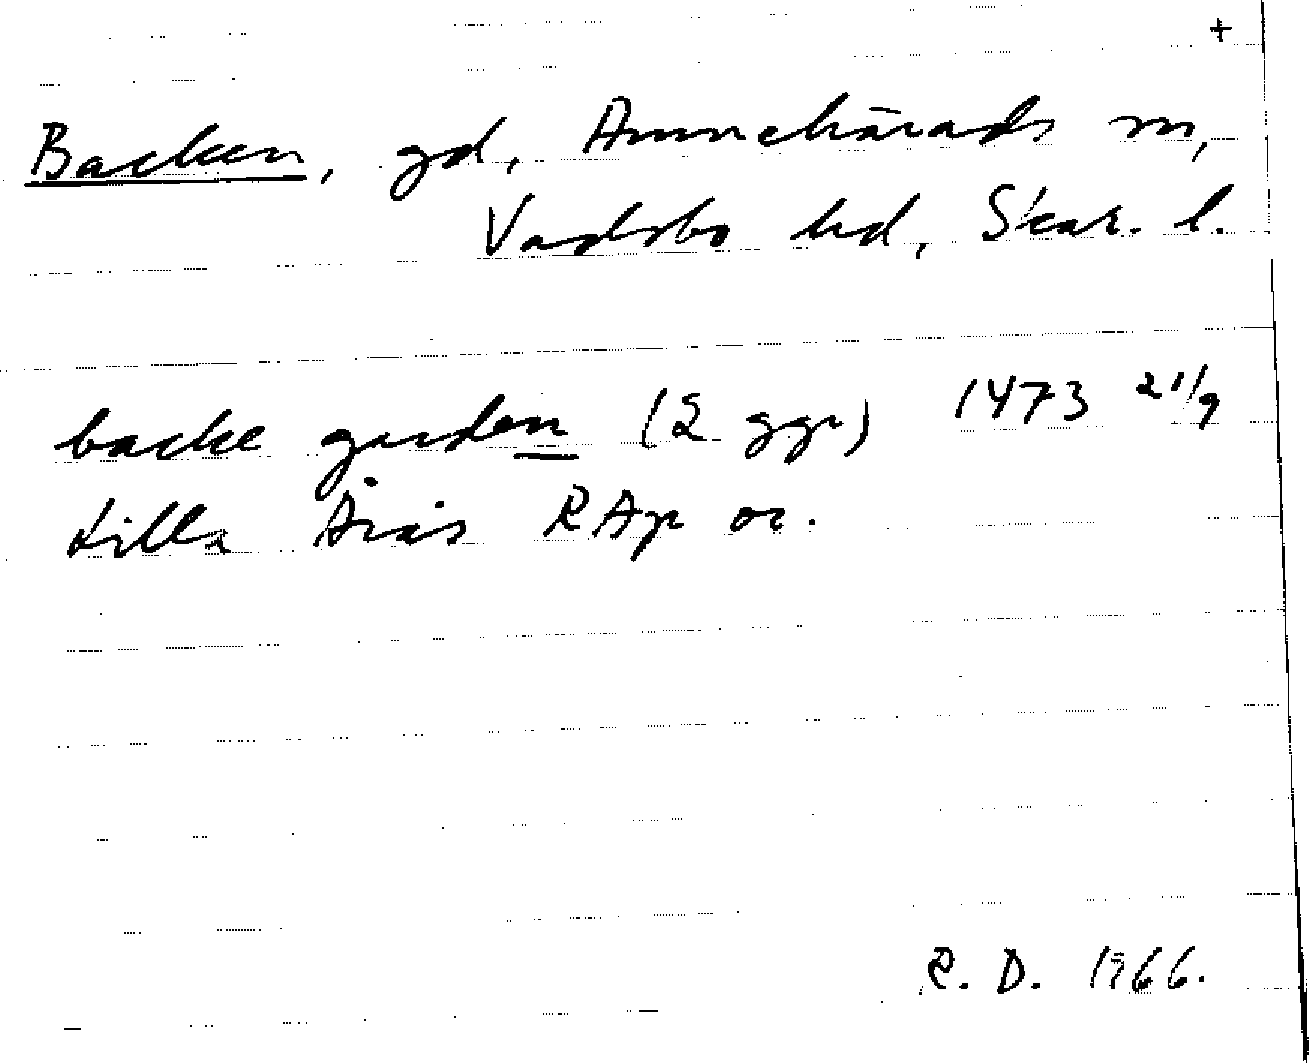 +
Backen, gd, Amnehärads sn,
Vadsbo hd, Skar. l.
backe garden (2 ggr) 1473 21/9
Lilla Årås RAp or.
R. D. 1966.